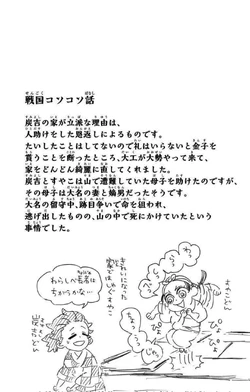 戦国コソコソ話
炭吉の家が立派な理由は、
人助けをした恩返しによるものです。
たいしたことはしてないので礼はいらないと金子を
貰うことを断ったところ、大工が大勢やって来て、
家をどんどん綺麗に直してくれました。
炭吉とすやこは山で遭難していた母子を助けたのですが、
その母子は大名の妻と嫡男だったそうです。
大名の留守中、跡目争いで命を狙われ、
逃げ出したものの、山の中で死にかけていたという
事情でした。
すやこどん
きれいになった
家ではしゃぐすやこ
わらしべ長者に
ちがうかな…
炭吉どん